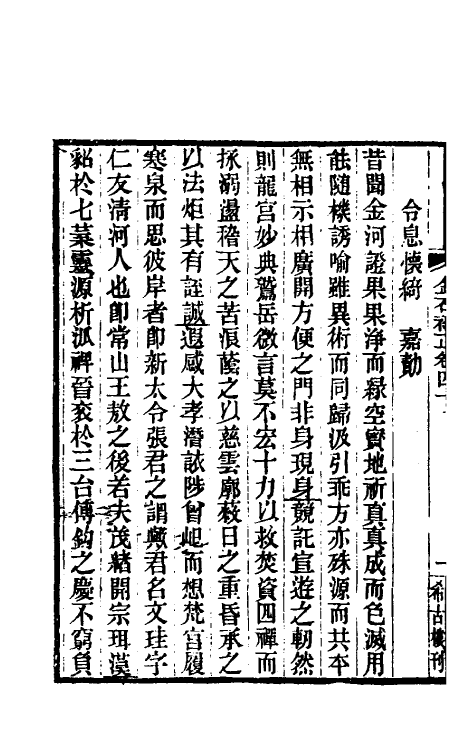 金石補正卷四十三
一
希古樓刊
令息懷綺　嘉勣
昔聞金河證果果淨而緣空寶地祈真真成而色滅用
能隨機誘喻雖異術而同歸汲引乖方亦殊源而共本
無相示相廣開方便之門非身現身競託宣遊之軔然
則龍宮妙典鷲岳微言莫不宏十力以救焚資四禪而
拯溺盪稽天之苦浪蔭之以慈雲廓蔽日之重昏承之
以法炬其有誔誠遐感大孝潛該陟曾屺而想梵宮履
寒泉而思彼岸者即新太令張君之謂歟君名文珪字
仁友清河人也即常山王敖之後若夫茂緒開宗珥漢
貂於七葉靈源析派禆晉袞於三台傳鈎之慶不窮負